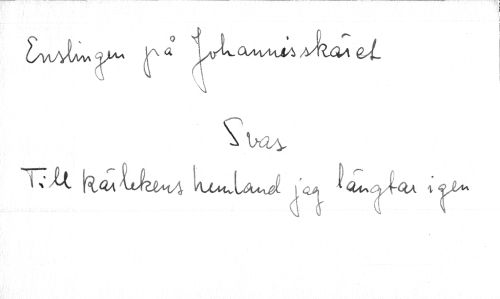 Enslingen på Johannisskäret
Svas
Till kärlekens hemland jag längtar igen